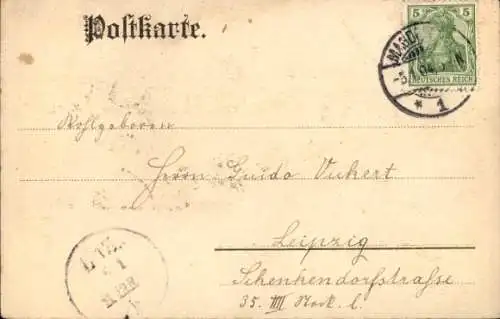 Postkarte.
5
DEUTSCHES REICH
* 1
Wohlgeboren
Herrn Guido Vukert
Leipzig
Schenkendorfstrasse
35. III Stock l.